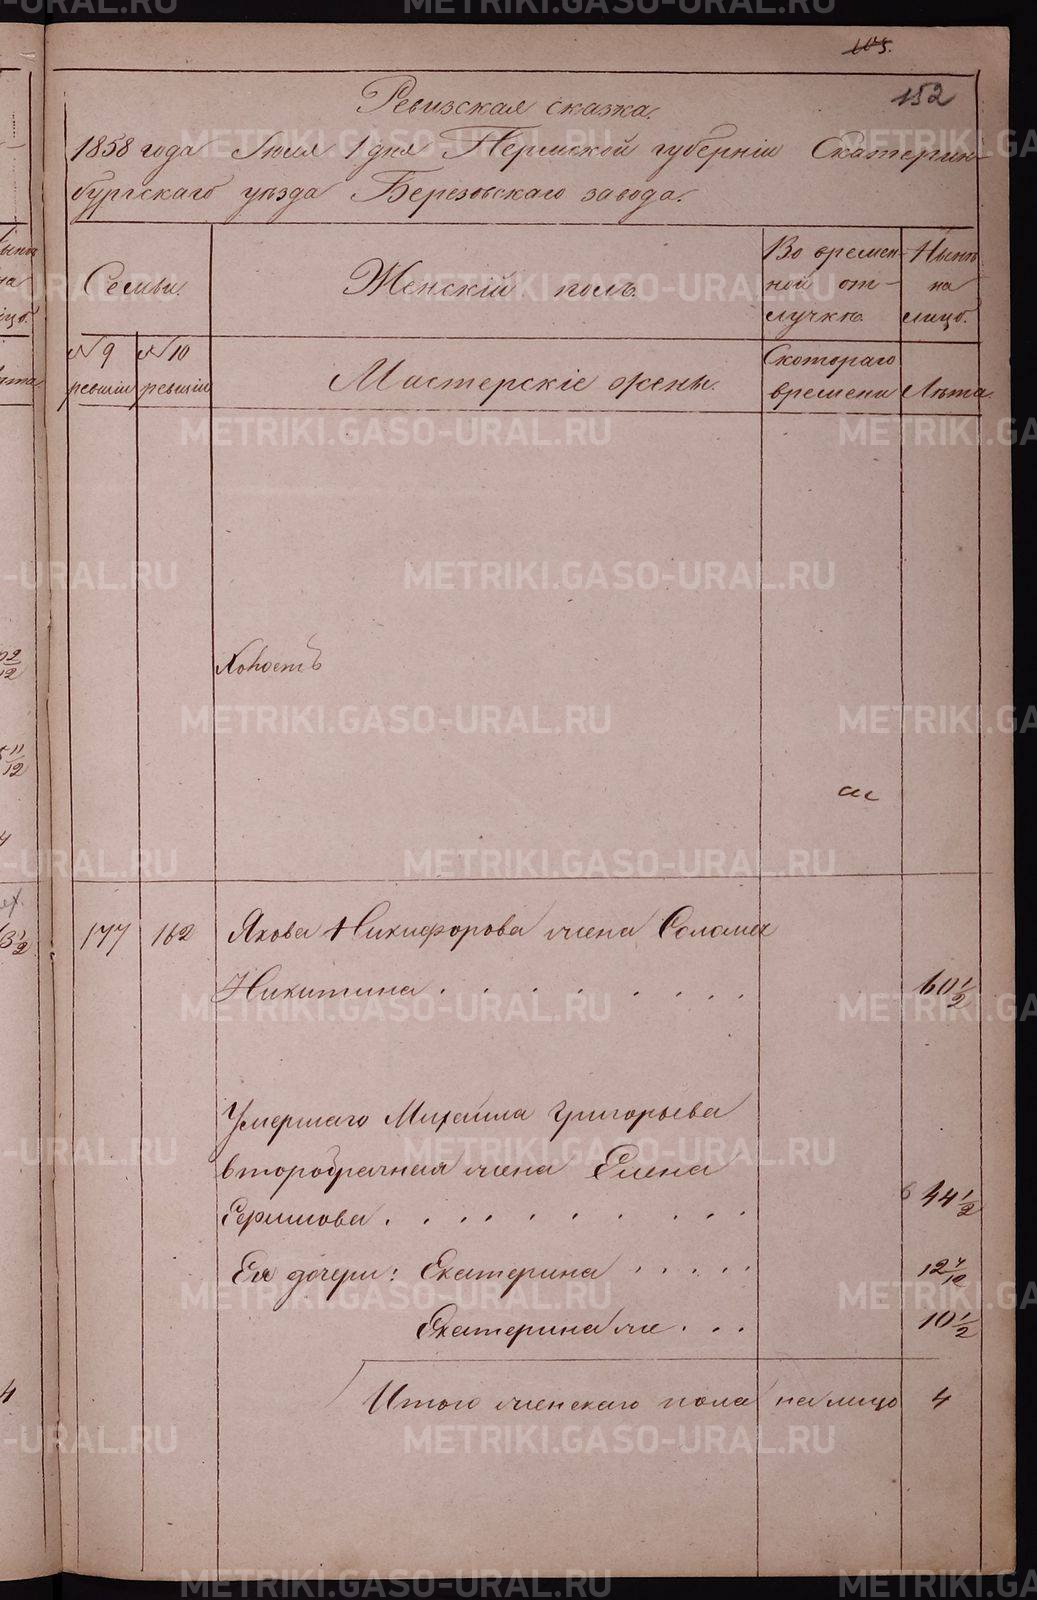 105.
152
Ревизская сказка.
1858 года Июля 1 дня Пермской губерніи Екатерин-
бургскаго уѣзда Березовскаго завода.
Семьи.
Женскій полъ.
Во времен-
ной от-
лучкѣ.
Нынѣ
на
лицо.
№ 9
ревизіи
№ 10
ревизіи
Мастерскіе жены.
Скотораго
времени
Лѣта.
Холостъ
177 162 Якова Никифорова жена Соломея
Никитина . . . . . . . . 60 1/2
Умершаго Михаила Григорьева
второбрачная жена Елена
. . . . . . . . . 44 1/2
Ея дочери: Екатерина . . . . . 12 4/12
Екатерина же . . . 10 1/2
Итого женскаго пола на лицо 4
METRIKI.GASO-URAL.RU